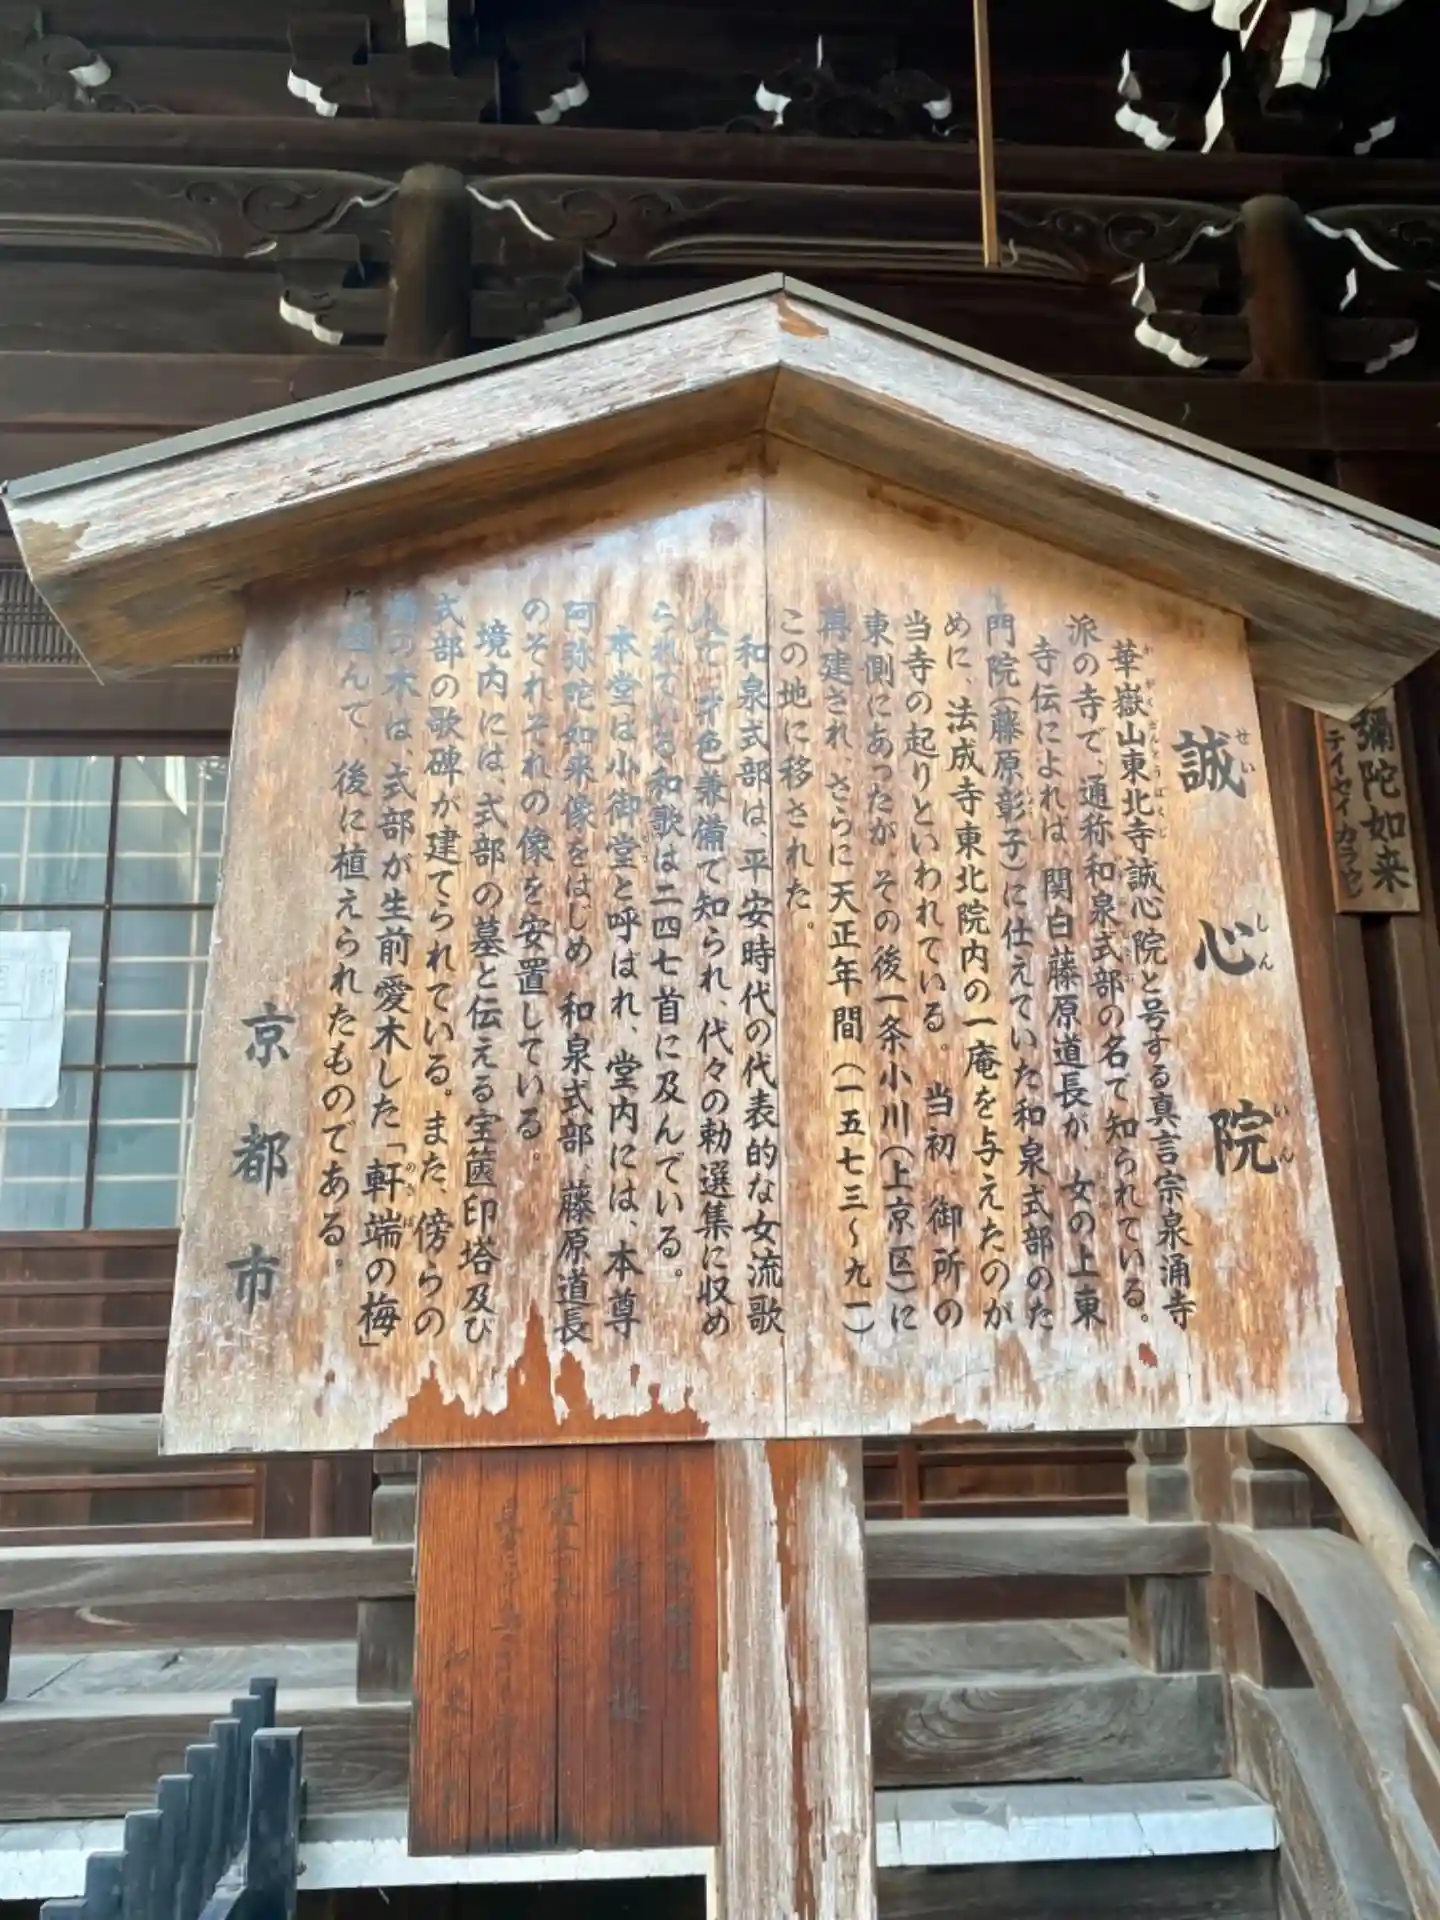 誠心院
せい しん いん
華嶽山東北寺誠心院と号する真言宗泉涌寺
派の寺で、通称和泉式部の名で知られている。
寺伝によれば、関白藤原道長が、女の上東
門院(藤原彰子)に仕えていた和泉式部のた
めに、法成寺東北院内の一庵を与えたのが
当寺の起りといわれている。当初、御所の
東側にあったが、その後一条小川(上京区)に
再建され、さらに天正年間(一五七三〜九一)
この地に移された。
和泉式部は、平安時代の代表的な女流歌
人で、才色兼備で知られ、代々の勅選集に収め
られている和歌は二四七首に及んでいる。
本堂は小御堂と呼ばれ、堂内には、本尊
阿弥陀如来像をはじめ、和泉式部、藤原道長
のそれぞれの像を安置している。
境内には、式部の墓と伝える宝篋印塔及び
式部の歌碑が建てられている。また、傍らの
梅の木は、式部が生前愛木した「軒端の梅」
に因んで、後に植えられたものである。
京都市
彌陀如来
テイセイカラヒ